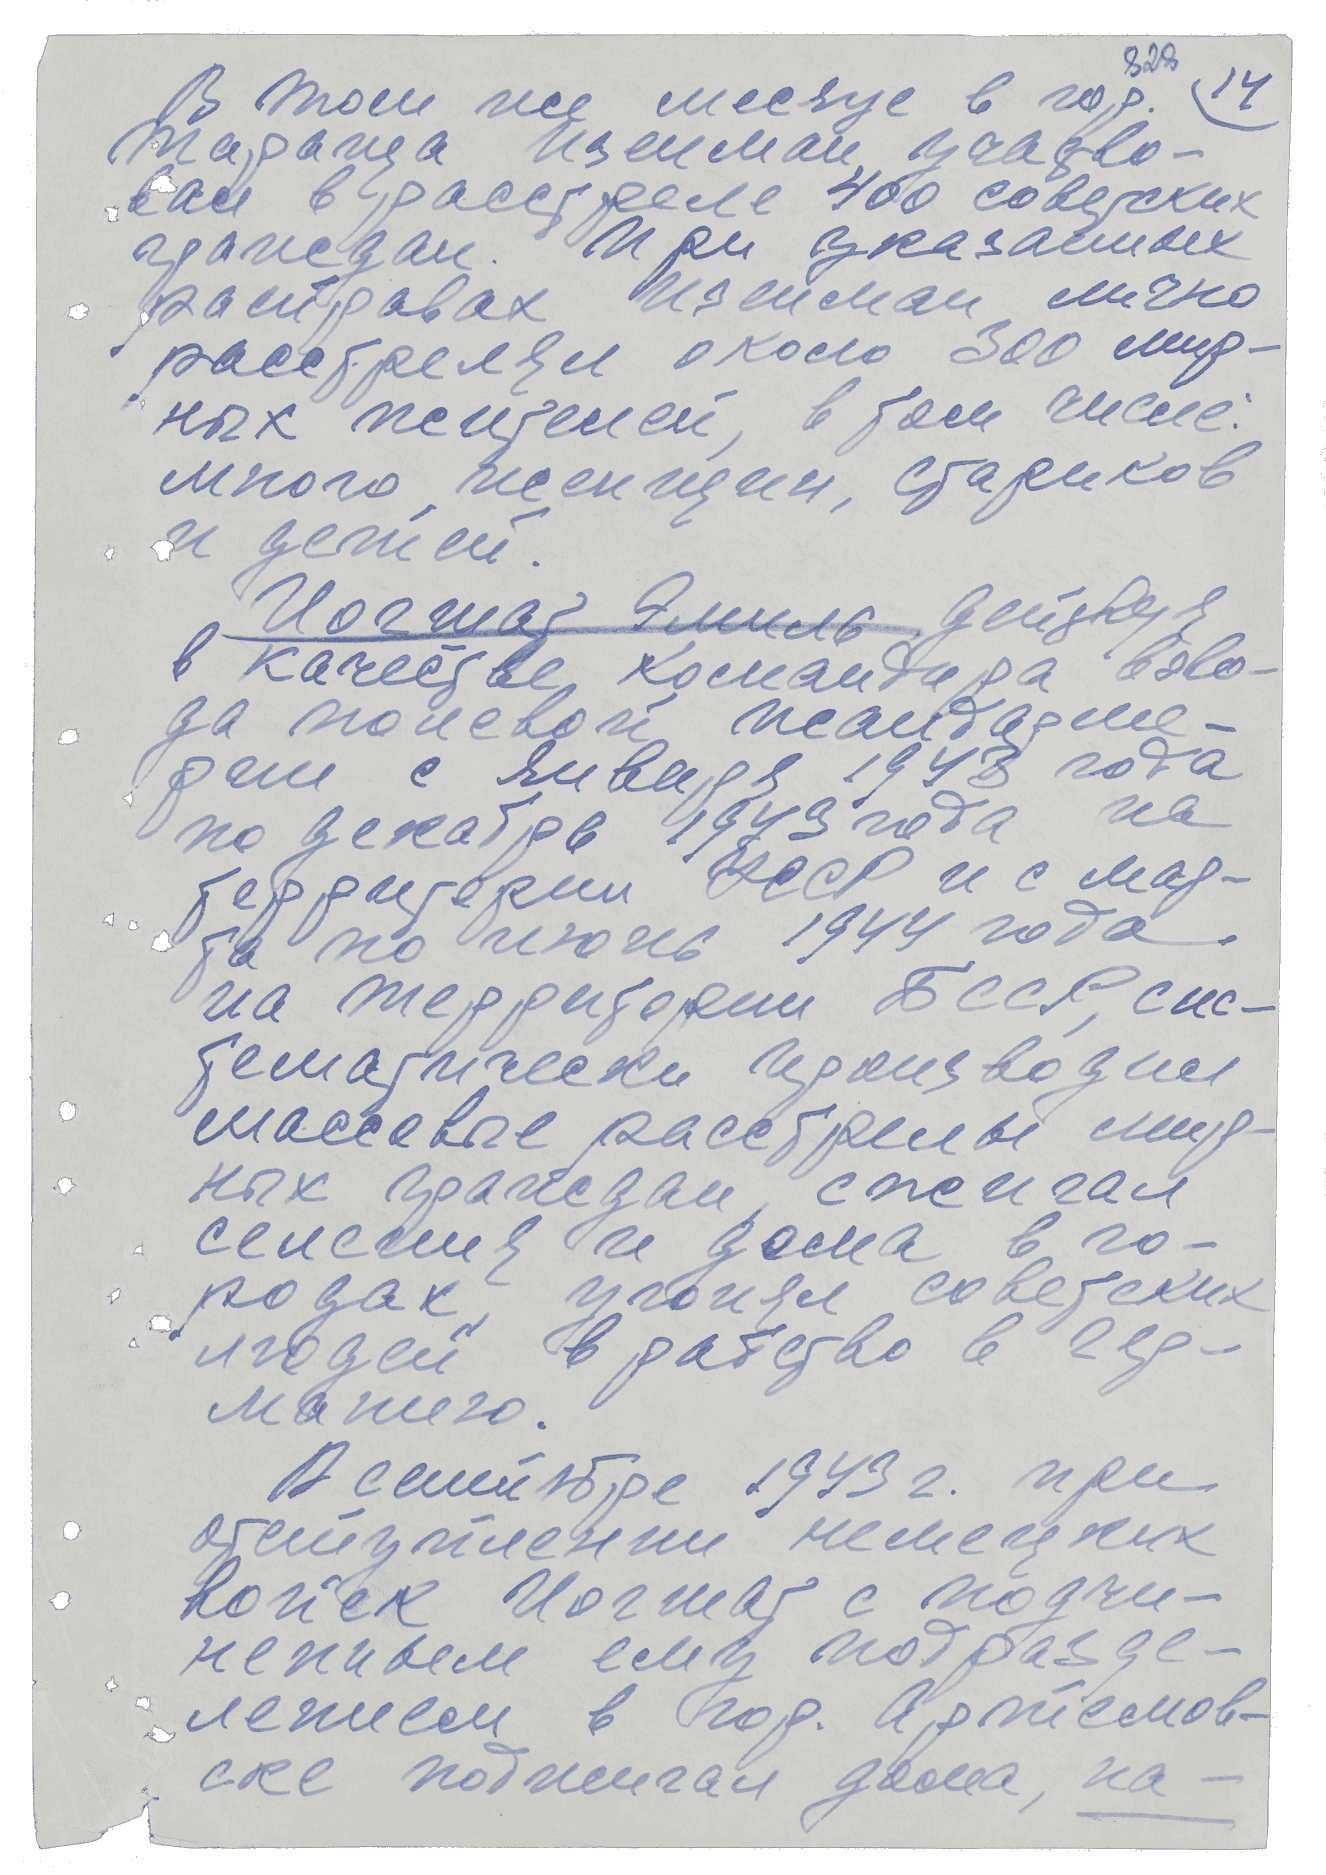 328 14
В том же месяце в гор.
Тараща Изенман участво-
вал в расстреле 400 советских
граждан. При указанных
расправах Изенман лично
расстрелял около 300 мир-
ных жителей, в том числе:
много женщин, стариков
и детей.
Йогшат Эмиль, действуя
в качестве командира взво-
да полевой жандарме-
рии с января 1943 года
по декабрь 1943 года на
территории УССР и с мар-
та по июнь 1944 года
на территории БССР, сис-
тематически производил
массовые расстрелы мир-
ных граждан, сжигал
селения и дома в го-
родах, угонял советских
людей в рабство в Гер-
манию.
В сентябре 1943 г. при
отступлении немецких
войск Йогшат с подчи-
ненным ему подразде-
лением в гор. Артемов-
ске поджигал дома, на-